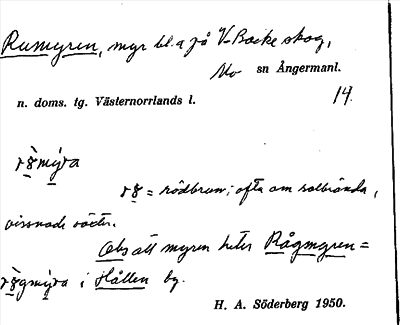 Rumyren, myr bl. a på V-Backe skog,
Mo sn Ångermanl.
n. doms. tg. Västernorrlands l.
14.
rö̀mýra
rö = rödbrun; ofta om solbrända,
vissnade växter.
Obs att myren heter Rågmyren =
rö̀gmýra i Hållen by.
H. A. Söderberg 1950.